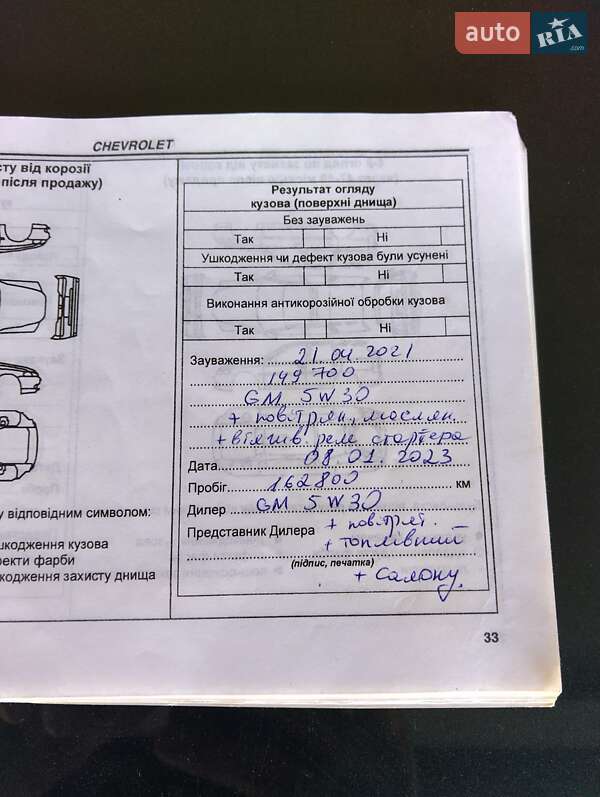 auto RIA.com
CHEVROLET
сту від корозії
після продажу)
Результат огляду
кузова (поверхні днища)
Без зауважень
Так Ні
Ушкодження чи дефект кузова були усунені
Так Ні
Виконання антикорозійної обробки кузова
Так Ні
Зауваження: 21 04 2021
149 700
GM 5W30
+ повітрян, маслян.
+ втягив. реле стартера
Дата 08.01.2023
Пробіг 162800 км
Дилер GM 5W30
Представник Дилера + повітрят.
+ топлівний
(підпис, печатка)
+ салону.
у відповідним символом:
шкодження кузова
фекти фарби
кодження захисту днища
33